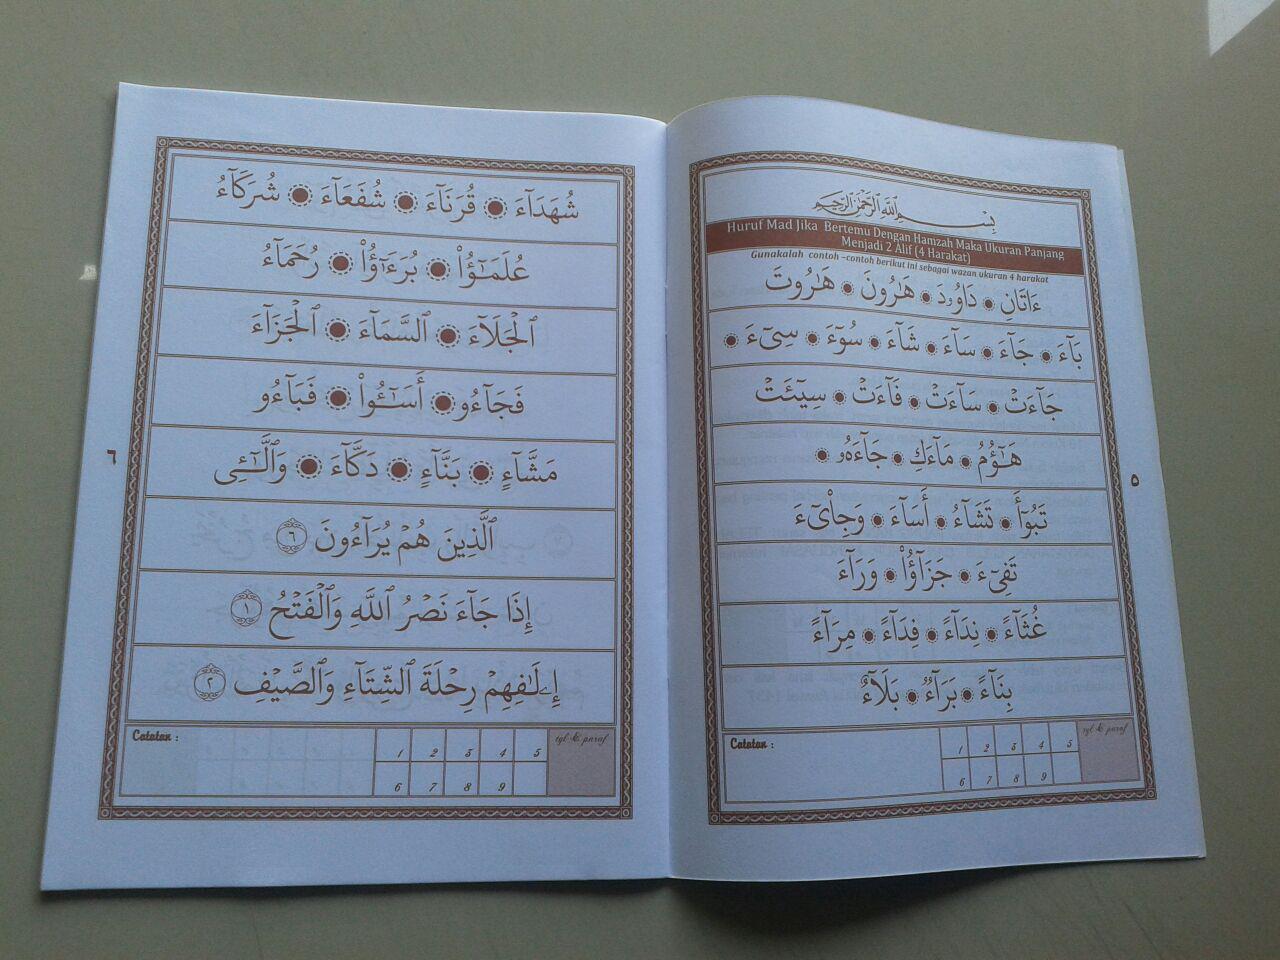 بِسْمِ ٱللَّهِ ٱلرَّحْمَٰنِ ٱلرَّحِيمِ
Huruf Mad Jika Bertemu Dengan Hamzah Maka Ukuran Panjang
Menjadi 2 Alif (4 Harakat)
Gunakalah contoh –contoh berikut ini sebagai wazan ukuran 4 harakat
ءَاتَانِ ● دَاوُۥدَ ● هَٰرُونَ ● هَٰرُوتَ
بَآءَ ● جَآءَ ● سَآءَ ● شَآءَ ● سُوٓءَ ● سِىٓءَ ●
جَآءَتْ ● سَآءَتْ ● فَآءَتْ ● سِيٓـَٔتْ
هَآؤُمُ ● مَآءَكِ ● جَآءَهُۥ ●
تَبُوٓأَ ● تَشَآءُ ● أَسَآءَ ● وَجِا۟ىٓءَ
تَفِىٓءَ ● جَزَٰٓؤُا۟ ● وَرَآءَ
غُثَآءً ● نِدَآءً ● فِدَآءً ● مِرَآءً
بِنَآءً ● بَرَآءٌ ● بَلَآءٌ
Catatan :
1 2 3 4 5 tgl & paraf
6 7 8 9
٥
شُهَدَآءَ ● قُرَنَآءَ ● شُفَعَآءَ ● شُرَكَآءُ
عُلَمَٰٓؤُا۟ ● بُرَءَٰٓؤُا۟ ● رُحَمَآءُ
ٱلْجَلَآءَ ● ٱلسَّمَآءَ ● ٱلْجَزَآءَ
فَجَآءُو ● أَسَـٰٓـُٔوا۟ ● فَبَآءُو
مَشَّآءٍ ● بَنَّآءٍ ● دَكَّآءَ ● وَٱلَّـٰٓـِٔى
ٱلَّذِينَ هُمْ يُرَآءُونَ ٦
إِذَا جَآءَ نَصْرُ ٱللَّهِ وَٱلْفَتْحُ ١
إِۦلَٰفِهِمْ رِحْلَةَ ٱلشِّتَآءِ وَٱلصَّيْفِ ٢
Catatan :
1 2 3 4 5 tgl & paraf
6 7 8 9
٦